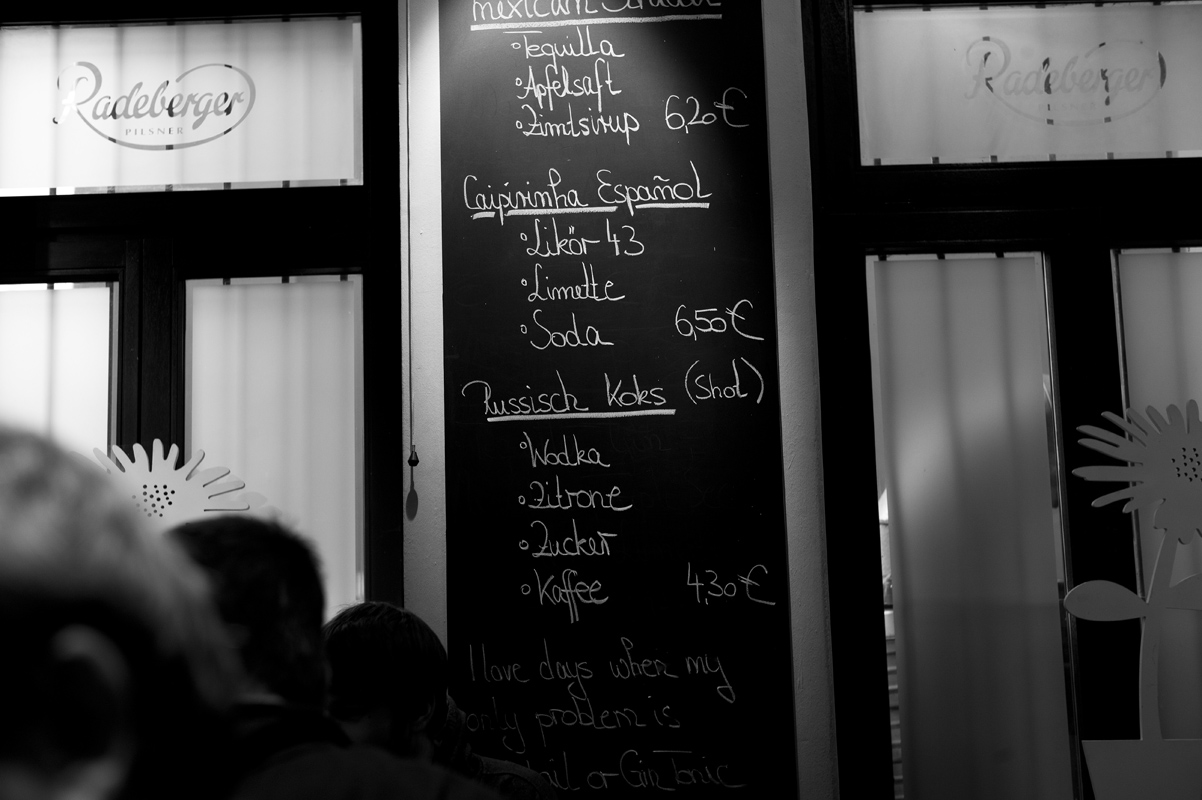 Radeberger
PILSNER
Radeberger
mexican
Tequilla
Apfelsaft
Zimtsirup 6,20€
Caipirinha Español
Likör 43
Limette
Soda 6,50€
Russisch Koks (Shot)
Wodka
Zitrone
Zucker
Kaffee 4,30€
I love days when my
only problem is
or Gin Tonic